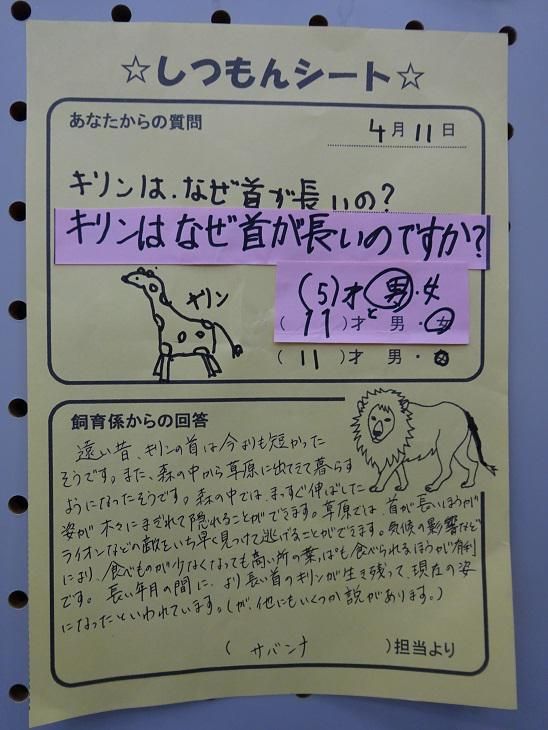 ☆しつもんシート☆
あなたからの質問
4月11日
キリンは、なぜ首が長いの?
キリンはなぜ首が長いのですか?
キリン
(5)才 男・女
と
(11)才 男・女
(11)才 男・
飼育係からの回答
遠い昔、キリンの首は今よりも短かった
そうです。また、森の中から草原に出てきて暮らす
ようになったそうです。森の中では、まっすぐ伸ばした
姿が木々にまぎれて隠れることができます。草原では、首が長いほうが
ライオンなどの敵をいち早く見つけて逃げることができます。気候の影響など
により、食べものが少なくなっても高い所の葉っぱも食べられるほうが有利
です。長い年月の間に、より長い首のキリンが生き残って、現在の姿
になったといわれています。(が、他にもいくつか説があります。)
(サバンナ)担当より